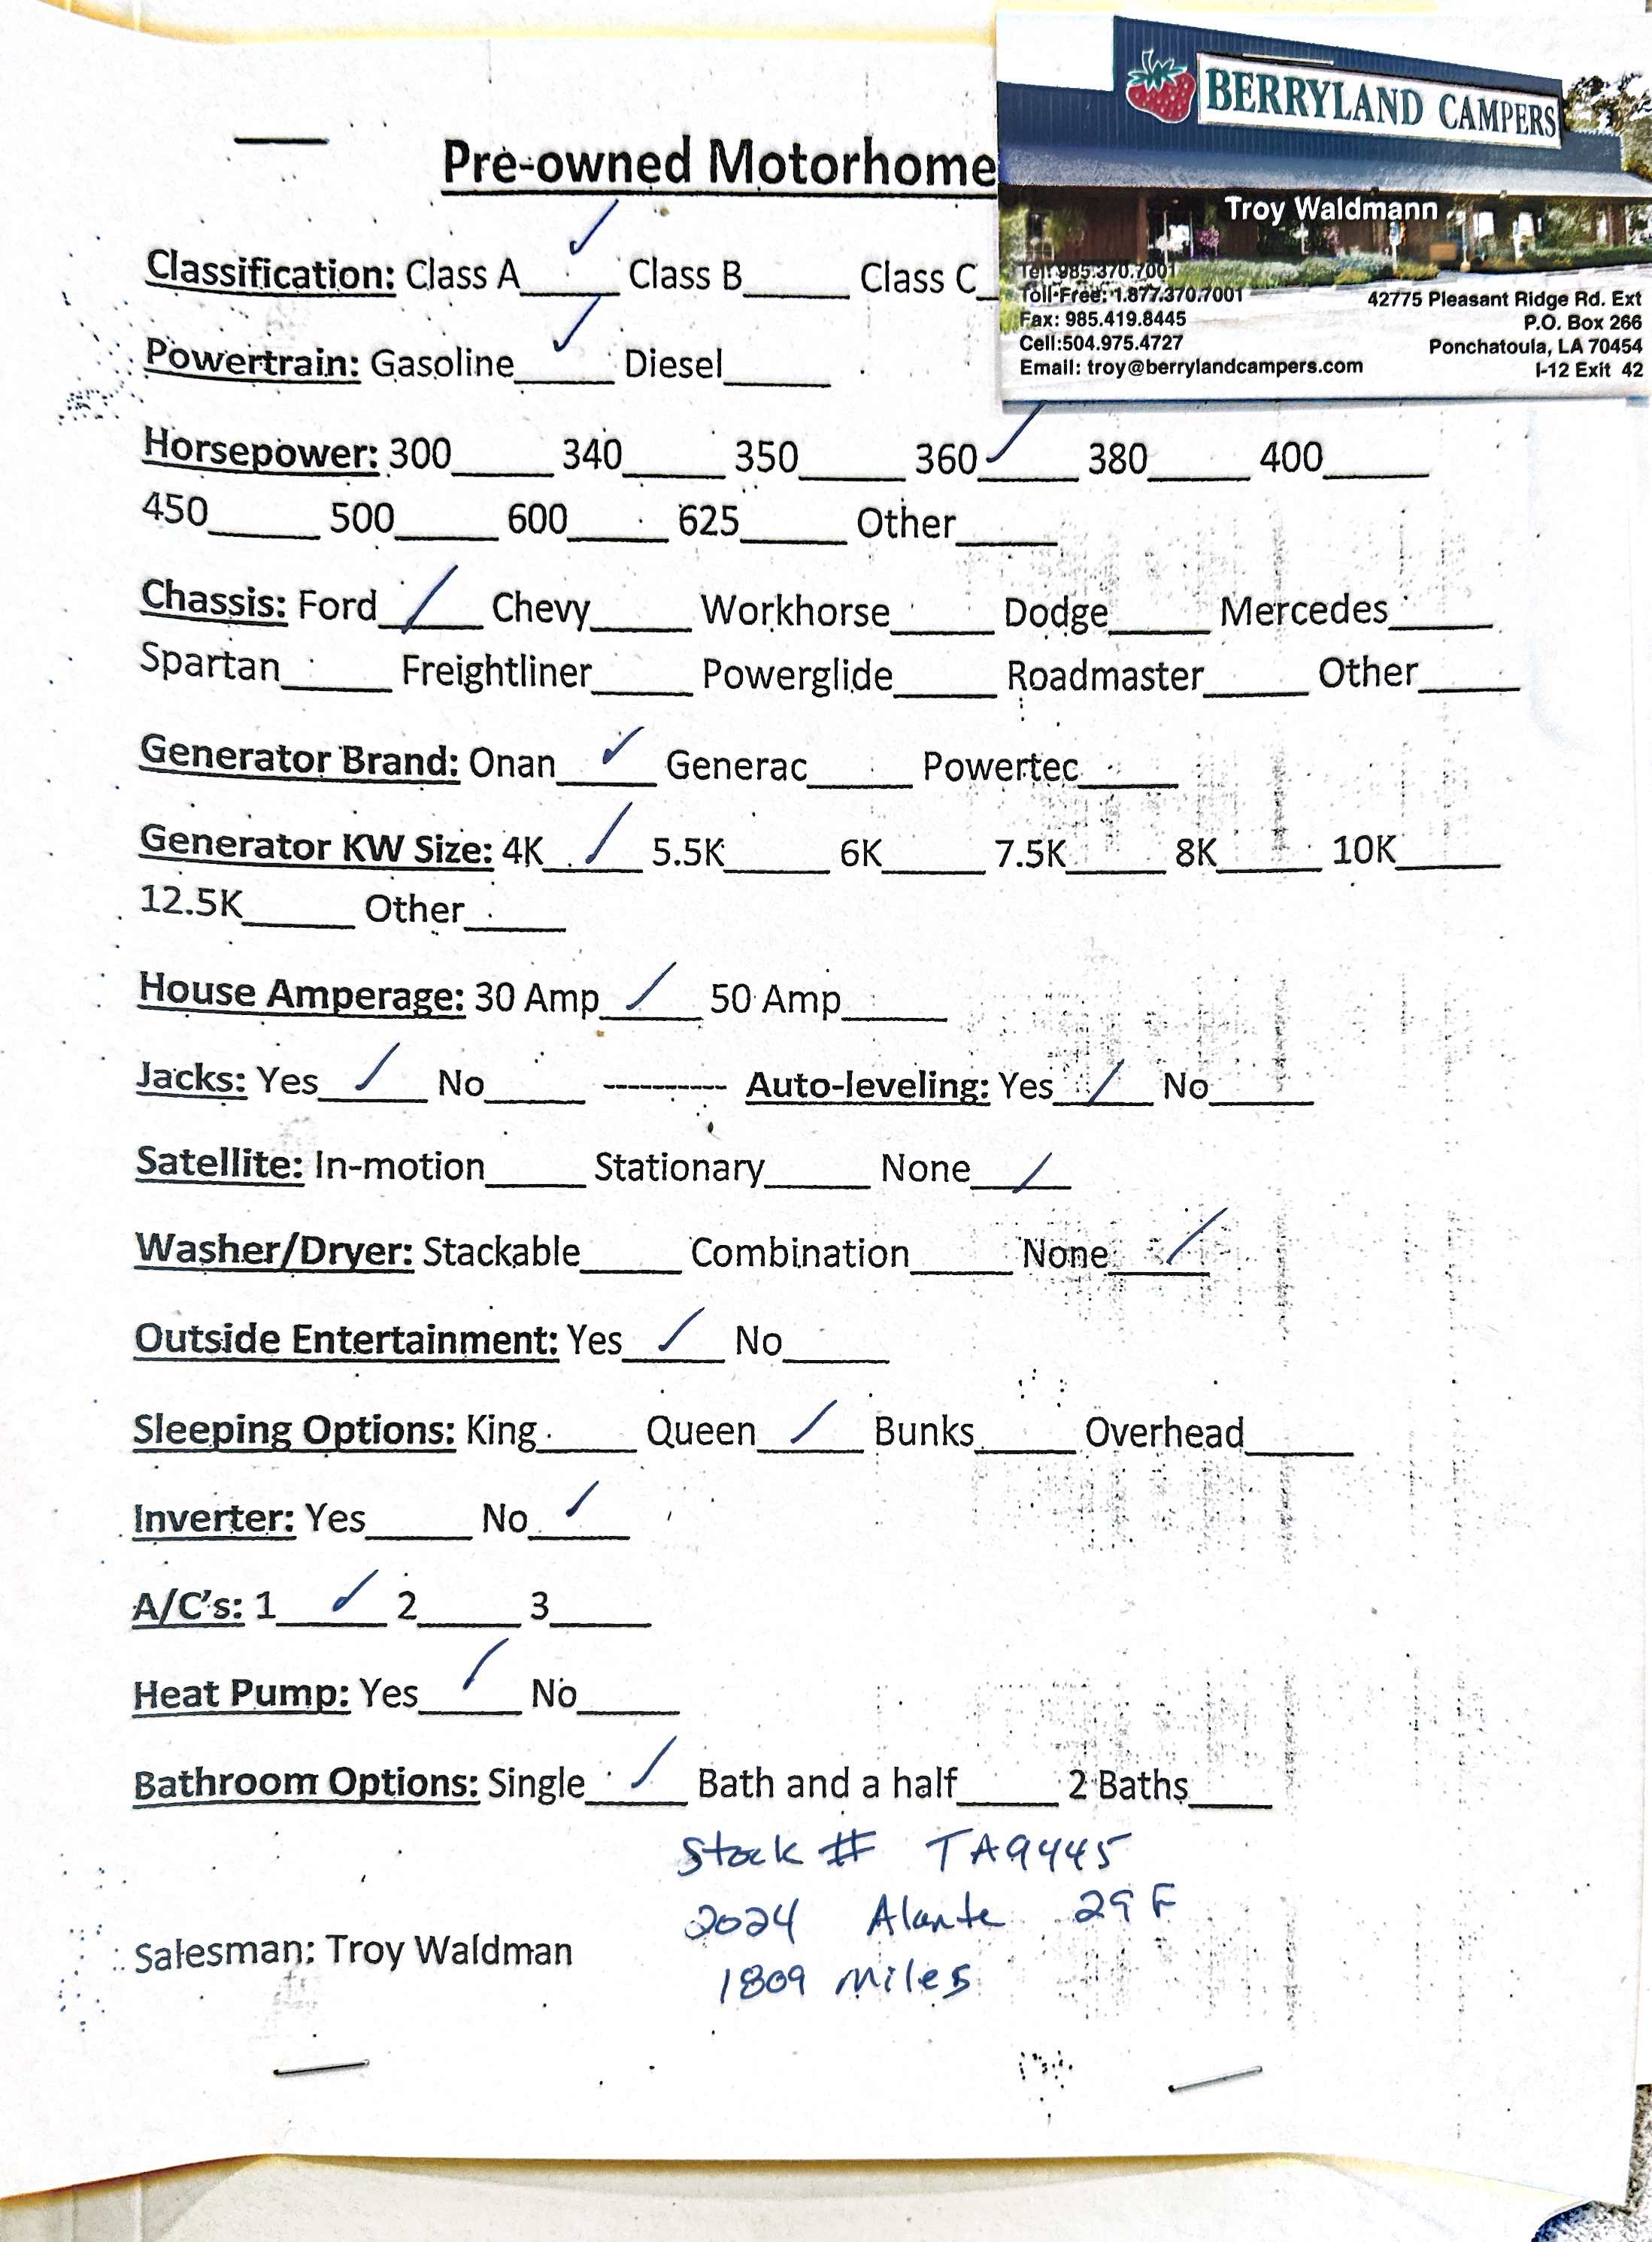 BERRYLAND CAMPERS
Troy Waldmann
Tel: 985.370.7001
Toll-Free: 1.877.370.7001
Fax: 985.419.8445
Cell:504.975.4727
Email: troy@berrylandcampers.com
42775 Pleasant Ridge Rd. Ext
P.O. Box 266
Ponchatoula, LA 70454
I-12 Exit 42
Pre-owned Motorhome
Classification: Class A ✓ Class B____ Class C_
Powertrain: Gasoline ✓ Diesel____
Horsepower: 300____ 340____ 350____ 360 ✓ 380____ 400____
450____ 500____ 600____ 625____ Other____
Chassis: Ford ✓ Chevy____ Workhorse____ Dodge____ Mercedes____
Spartan____ Freightliner____ Powerglide____ Roadmaster____ Other____
Generator Brand: Onan ✓ Generac____ Powertec____
Generator KW Size: 4K ✓ 5.5K____ 6K____ 7.5K____ 8K____ 10K____
12.5K____ Other____
House Amperage: 30 Amp ✓ 50 Amp____
Jacks: Yes ✓ No____ ---------- Auto-leveling: Yes ✓ No____
Satellite: In-motion____ Stationary____ None ✓
Washer/Dryer: Stackable____ Combination____ None ✓
Outside Entertainment: Yes ✓ No____
Sleeping Options: King____ Queen ✓ Bunks____ Overhead____
Inverter: Yes____ No ✓
A/C's: 1 ✓ 2____ 3____
Heat Pump: Yes ✓ No____
Bathroom Options: Single ✓ Bath and a half____ 2 Baths____
Stock # TA9445
2024 Alante 29F
1809 miles
Salesman: Troy Waldman